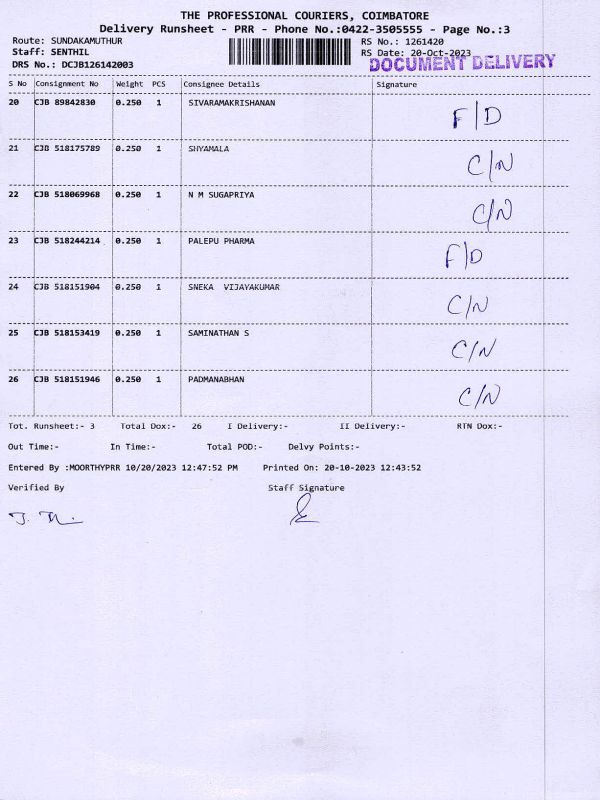 THE PROFESSIONAL COURIERS, COIMBATORE
Delivery Runsheet - PRR - Phone No.:0422-3505555 - Page No.:3
Route: SUNDAKAMUTHUR RS No.: 1261420
Staff: SENTHIL RS Date: 20-Oct-2023
DRS No.: DCJB126142003 DOCUMENT DELIVERY
S No Consignment No Weight PCS Consignee Details Signature
20 CJB 89842830 0.250 1 SIVARAMAKRISHANAN F/D
21 CJB 518175789 0.250 1 SHYAMALA C/N
22 CJB 518069968 0.250 1 N M SUGAPRIYA C/N
23 CJB 518244214 0.250 1 PALEPU PHARMA F/D
24 CJB 518151904 0.250 1 SNEKA VIJAYAKUMAR C/N
25 CJB 518153419 0.250 1 SAMINATHAN S C/N
26 CJB 518151946 0.250 1 PADMANABHAN C/N
Tot. Runsheet:- 3 Total Dox:- 26 I Delivery:- II Delivery:- RTN Dox:-
Out Time:- In Time:- Total POD:- Delvy Points:-
Entered By :MOORTHYPRR 10/20/2023 12:47:52 PM Printed On: 20-10-2023 12:43:52
Verified By Staff Signature